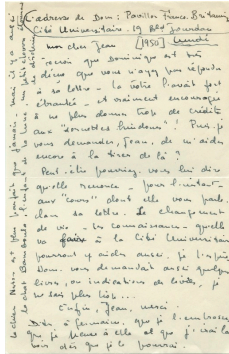 L'adresse de Dom : Pavillon Franco Britannique
Cité Universitaire, 19 Bd Jourdan
mon cher Jean [1950] Lundi
que Dominique est très
déçue que vous n'ayez pas répondu
à sa lettre - la vôtre l'avait tant
et vraiment encouragée
à ne plus donner trop de crédit
aux "
vous demander, Jean, de m'aider
encore à la tirer de là ?
Peut-être pourriez-vous lui dire
qu'elle renonce - pour l'instant -
aux "cours" dont elle vous parle
dans sa lettre. Le changement
de vie - les connaissances - qu'elle
va faire à la Cité Universitaire
pourront y aider aussi, je l'espère
Dom. vous demandait aussi quelques
livres, ou indications de livres, je
ne sais plus
Enfin, Jean, merci.
Dites à Germaine, que je l'embrasse,
que je pense à elle et que j'irai la
voir dès que je le pourrai.
est plus que jamais, mais il y a aussi
le chat